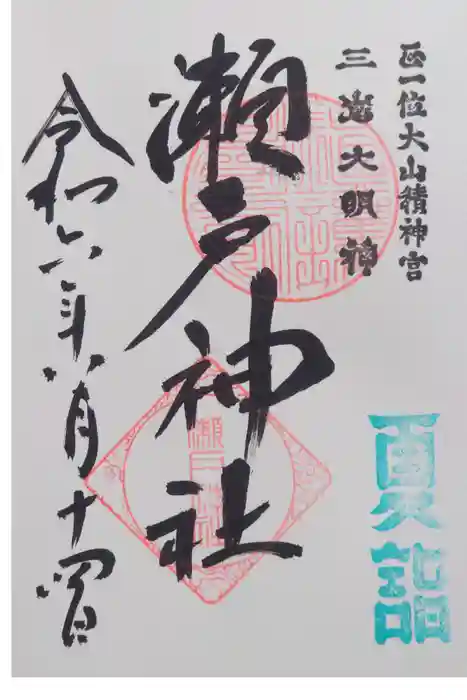 正一位大山積神宮
三嶌大明神
瀬戸神社
令和六年八月十四日
夏詣